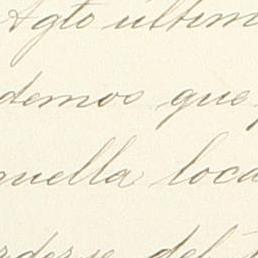 Agto últim
demos que
quella loca
rderse del